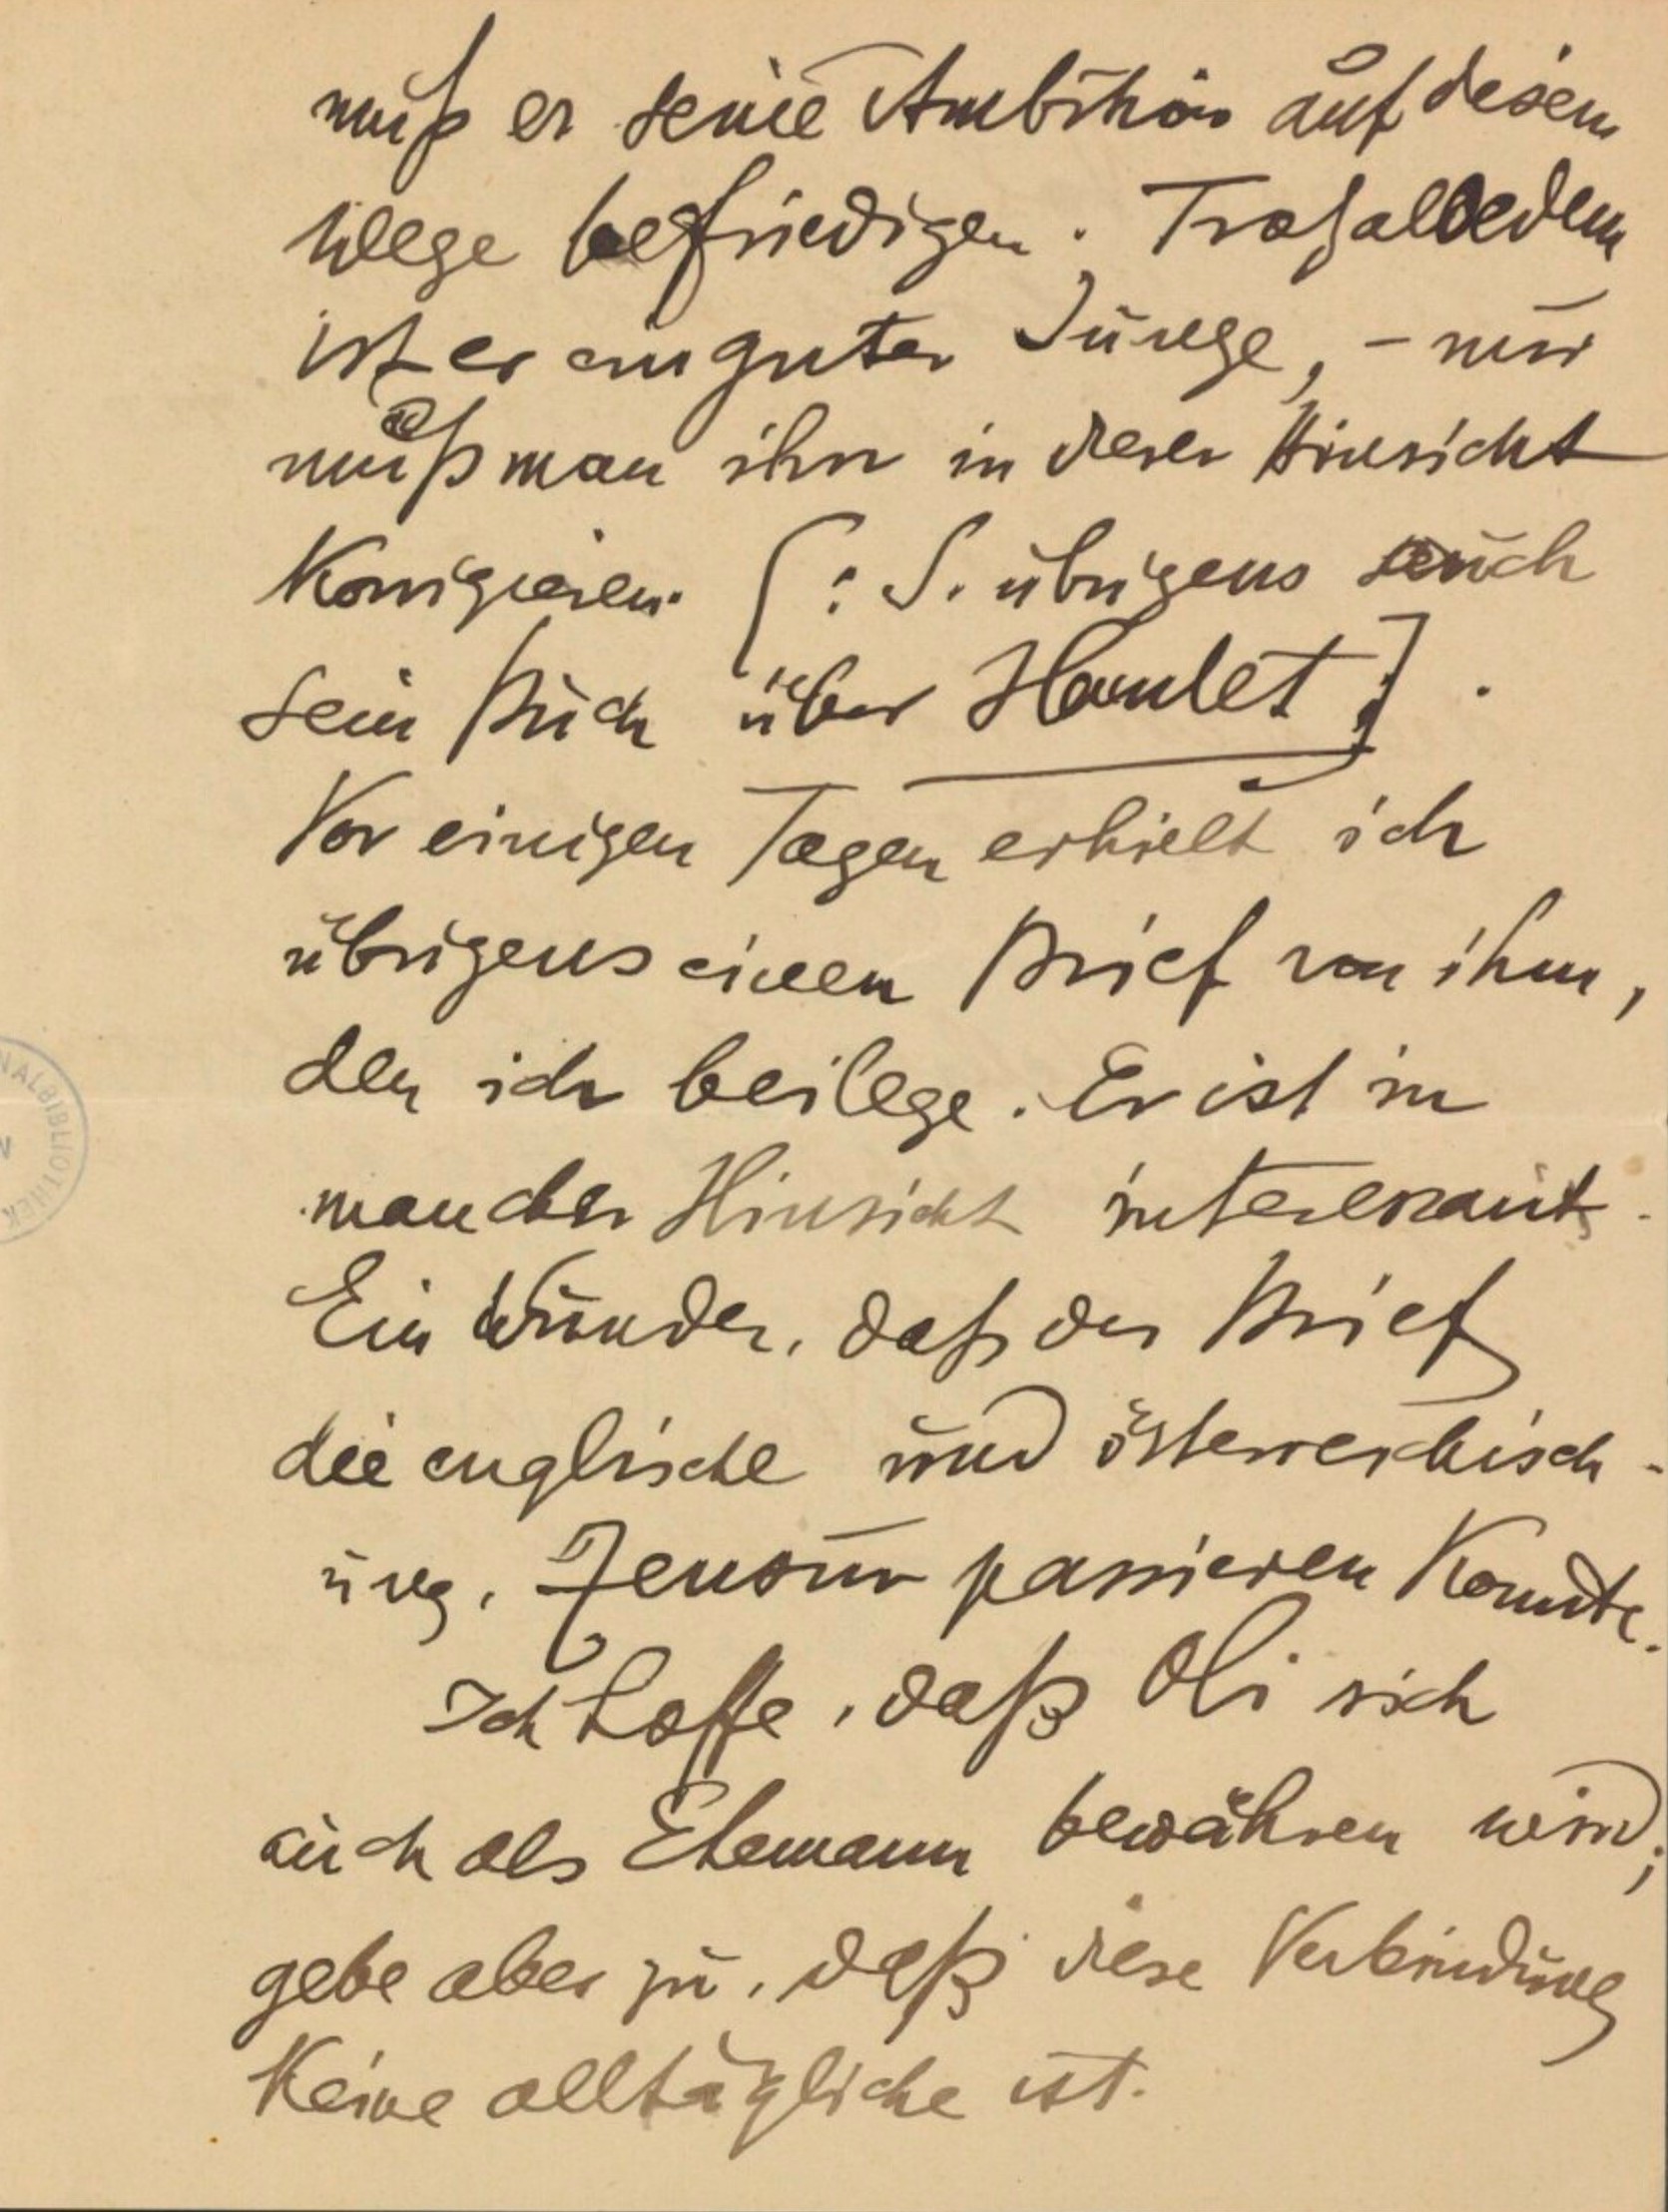 muß er seine Ambition auf diesem
Wege befriedigen. Trotzalledem
ist er ein guter Junge, – nur
muß man ihn in dieser Hinsicht
korrigieren. [: S. übrigens auch
sein Buch über Hamlet :] .
Vor einigen Tagen erhielt ich
übrigens einen Brief von ihm,
den ich beilege. Er ist in
mancher Hinsicht interessant.
Ein Wunder, daß der Brief
die englische und österreichisch-
ung. Zensur passieren konnte.
Ich hoffe, daß Oli sich
auch als Ehemann bewähren wird;
gebe aber zu, daß diese Verbindung
keine alltägliche ist.
NALBIBLIOTHEK